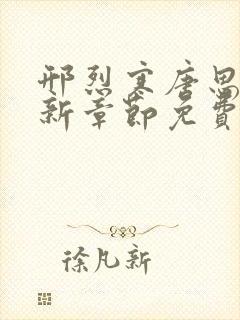 邢烈寒唐思
新章節免費
徐凡新